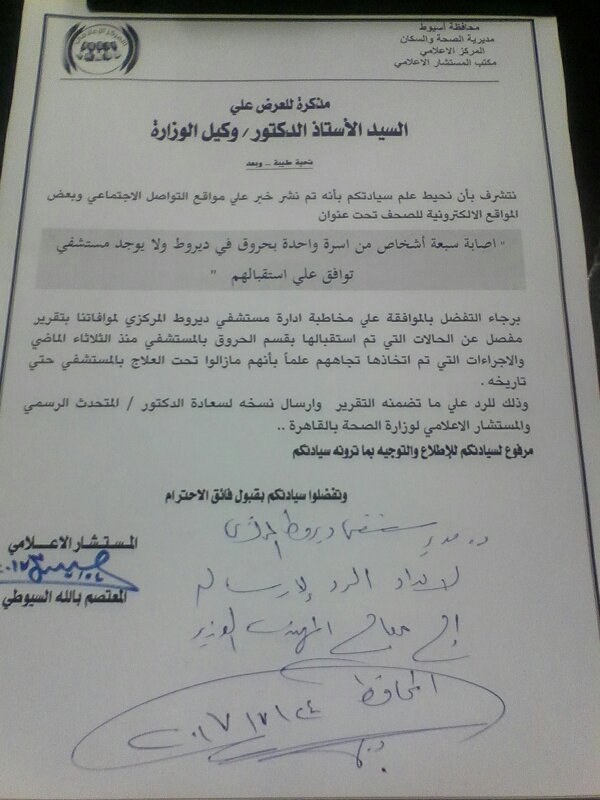 محافظة أسيوط
مديرية الصحة والسكان
المركز الاعلامي
مكتب المستشار الاعلامي
المركز الإعلامي
مذكرة للعرض علي
السيد الأستاذ الدكتور / وكيل الوزارة
تحية طيبة .. وبعد
نتشرف بأن نحيط علم سيادتكم بأنه تم نشر خبر علي مواقع التواصل الاجتماعي وبعض
المواقع الالكترونية للصحف تحت عنوان
" اصابة سبعة أشخاص من اسرة واحدة بحروق في ديروط ولا يوجد مستشفي
توافق علي استقبالهم "
برجاء التفضل بالموافقة علي مخاطبة ادارة مستشفي ديروط المركزي لموافاتنا بتقرير
مفصل عن الحالات التي تم استقبالها بقسم الحروق بالمستشفي منذ الثلاثاء الماضي
والاجراءات التي تم اتخاذها تجاهم علماً بأنهم مازالوا تحت العلاج بالمستشفي حتي
تاريخه .
وذلك للرد علي ما تضمنه التقرير وارسال نسخه لسعادة الدكتور / المتحدث الرسمي
والمستشار الاعلامي لوزارة الصحة بالقاهرة ..
مرفوع لسيادتكم للإطلاع والتوجيه بما ترونه سيادتكم
وتفضلوا سيادتكم بقبول فائق الاحترام
المستشار الاعلامي
المعتصم بالله السيوطي
د. مدير مستشفى ديروط المركزى
لاعداد الرد لإرساله
إلى معالى المهندس الوزير
المحافظ